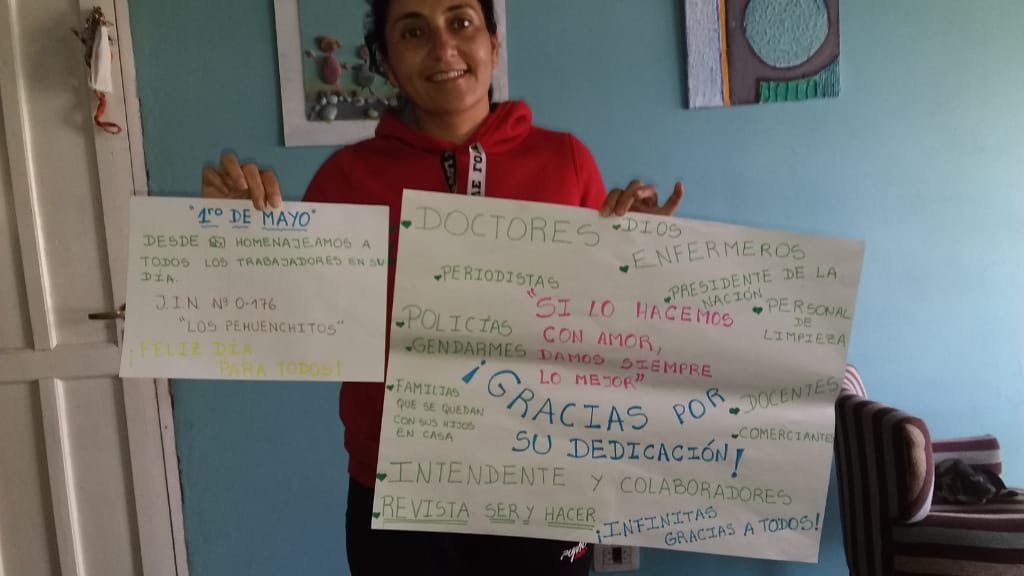 "1ro DE MAYO"
DESDE HOMENAJEAMOS A
TODOS LOS TRABAJADORES EN SU
DÍA.
J.I.N. Nº 0-176
"LOS PEHUENCHITOS"
¡FELIZ DÍA
PARA TODOS!
DOCTORES
DIOS
ENFERMEROS
PERIODISTAS
PRESIDENTE DE LA
NACIÓN
PERSONAL
DE
LIMPIEZA
"SI LO HACEMOS
CON AMOR,
DAMOS SIEMPRE
LO MEJOR"
POLICÍAS
GENDARMES
¡GRACIAS POR
SU DEDICACIÓN!
FAMILIAS
QUE SE QUEDAN
CON SUS HIJOS
EN CASA
DOCENTES
COMERCIANTES
INTENDENTE Y COLABORADORES
REVISTA SER Y HACER
¡INFINITAS
GRACIAS A TODOS!